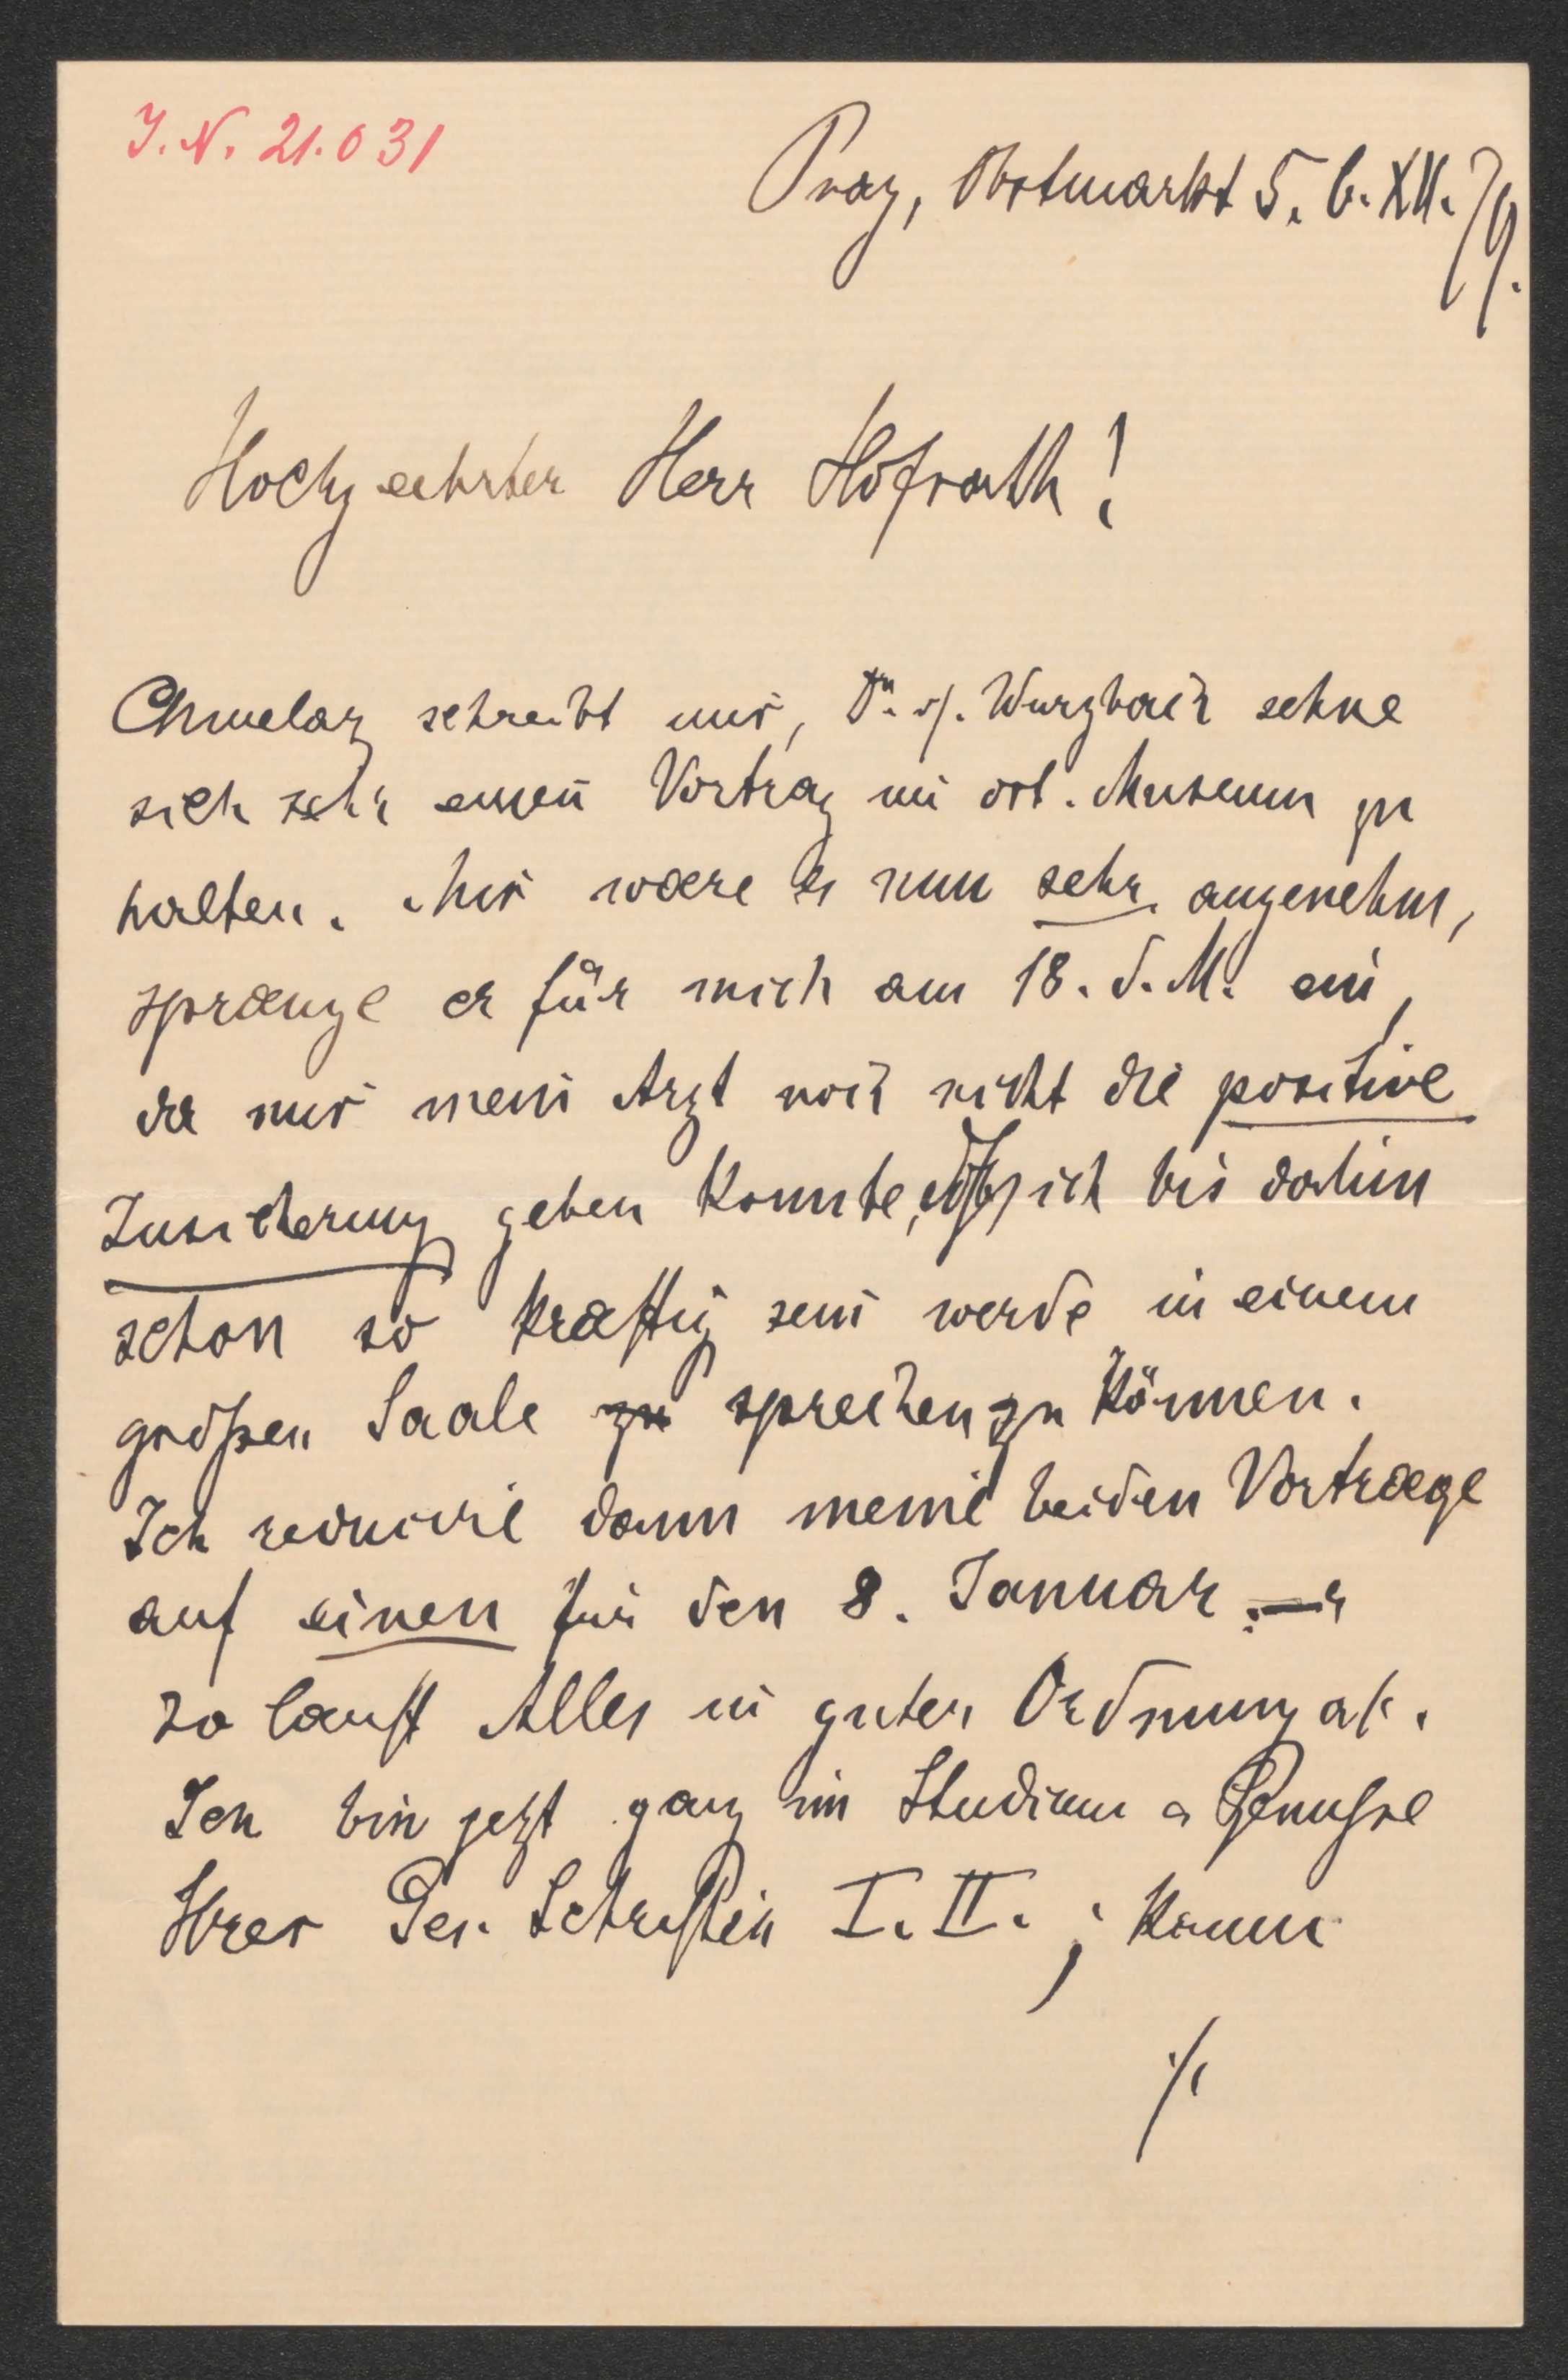 I.N. 21.031
Prag, Obstmarkt 5. 6. XII. 79.
Hochgeehrter Herr Hofrath!
Chmelarz schreibt mir, Dr. v. Wurzbach sehne
sich sehr einen Vortrag im öst. Museum zu
halten. Mir waere es nun sehr angenehm,
spraenge er für mich am 18. d. M. ein,
da mir mein Arzt noch nicht die positive
Zusicherung geben konnte, ich bis dahin
schon so kraeftig sein werde in einem
großen Saale zu sprechen zu können.
Ich reducire dann meine beiden Vortraege
auf einen für den 8. Januar. —
so lauft Alles in guter Ordnung ab.
Ich bin jetzt ganz im Studium u Genusse
Ihrer Ges. Schriften I. II. ; kaum
./.